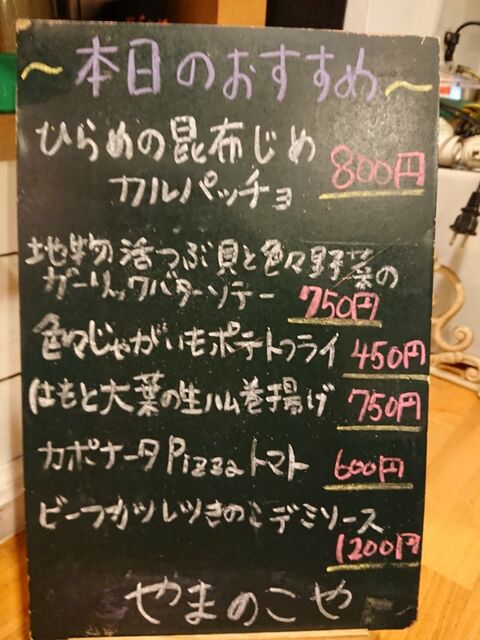 ～本日のおすすめ～
ひらめの昆布じめ
カルパッチョ 800円
地物活つぶ貝と色々野菜の
ガーリックバターソテー 750円
色々じゃがいもポテトフライ 450円
はもと大葉の生ハム巻揚げ 750円
カポナータPizzaトマト 600円
ビーフカツレツきのこデミソース
1200円
やまのこや